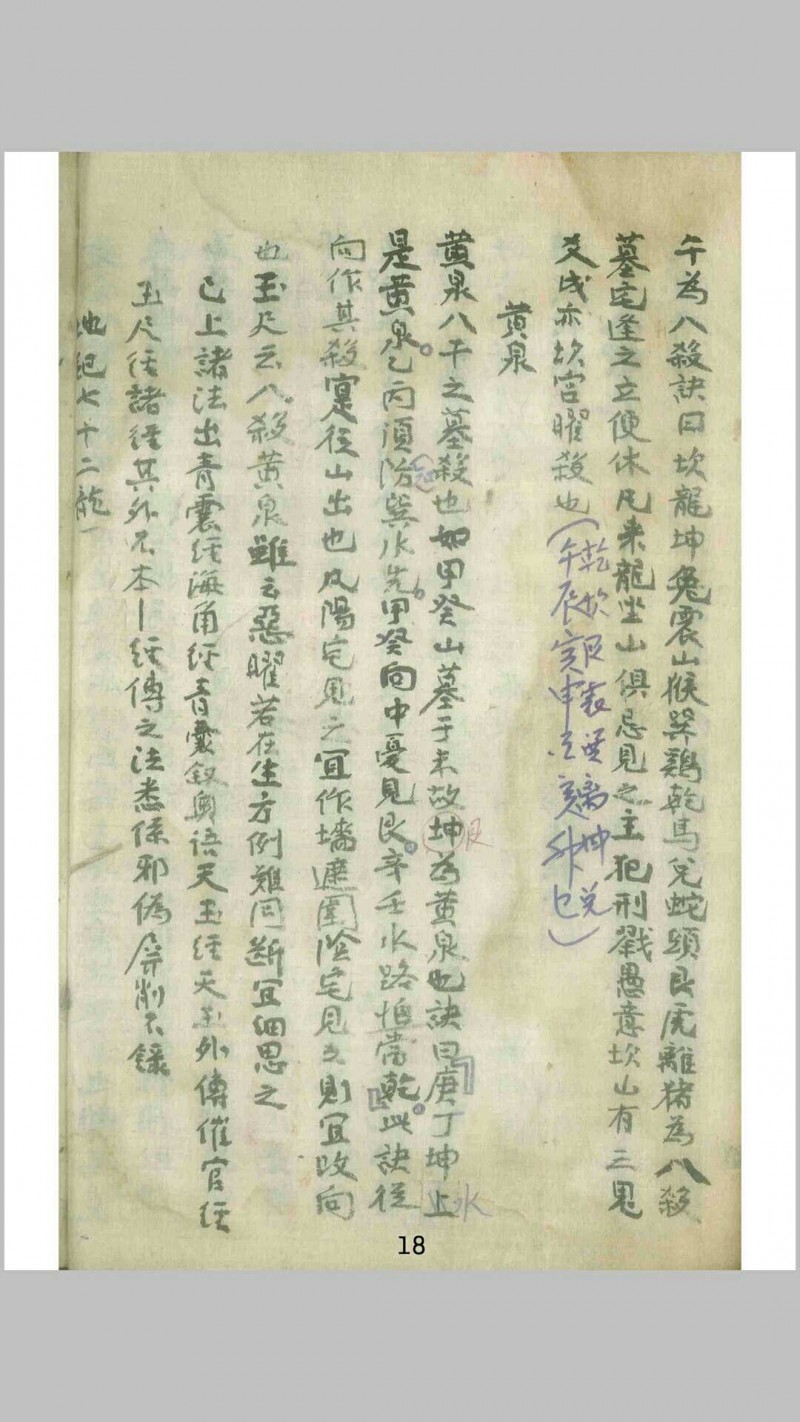 午為八殺訣曰坎龍坤兔震山猴巽鷄乾馬兌蛇頭艮虎離猪為八殺
墓宅逢之立便休凡来龍坐山俱忌見之主犯刑戮愚意坎山有三鬼
爻戌亦坎宫曜殺也(乾坎艮震巽离坤兌
午辰寅申酉亥卯巳)
黄泉
黄泉八干之墓殺也如甲癸山墓于未故坤為黄泉也訣曰庚丁坤上
艮
水
是黄泉乙丙須防巽水先甲癸向中憂見艮辛壬水路怕當乾此訣從
向作其殺寔從山出也凡陽宅見之宜作墻遮圍陰宅見之則宜改向
也玉尺云八殺黄泉雖云惡曜若在生方例難同断宜細思之
已上諸法出青囊經海角經青囊叙奥语天玉經天玉外傳催官經
玉尺經諸經其外不本經傳之法悉係邪偽屏削不錄
地紀七十二龍
18